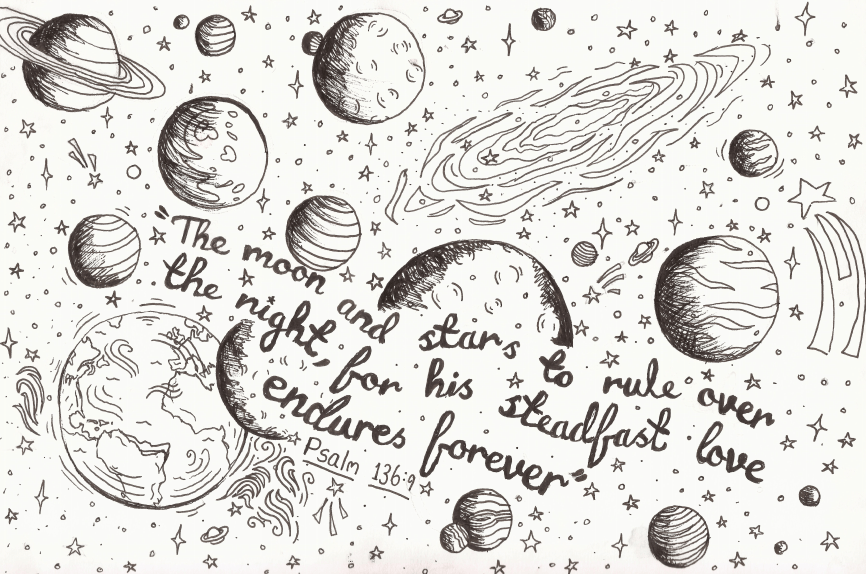 "The moon and stars to rule over
the night, for his steadfast love
endures forever"
Psalm 136:9